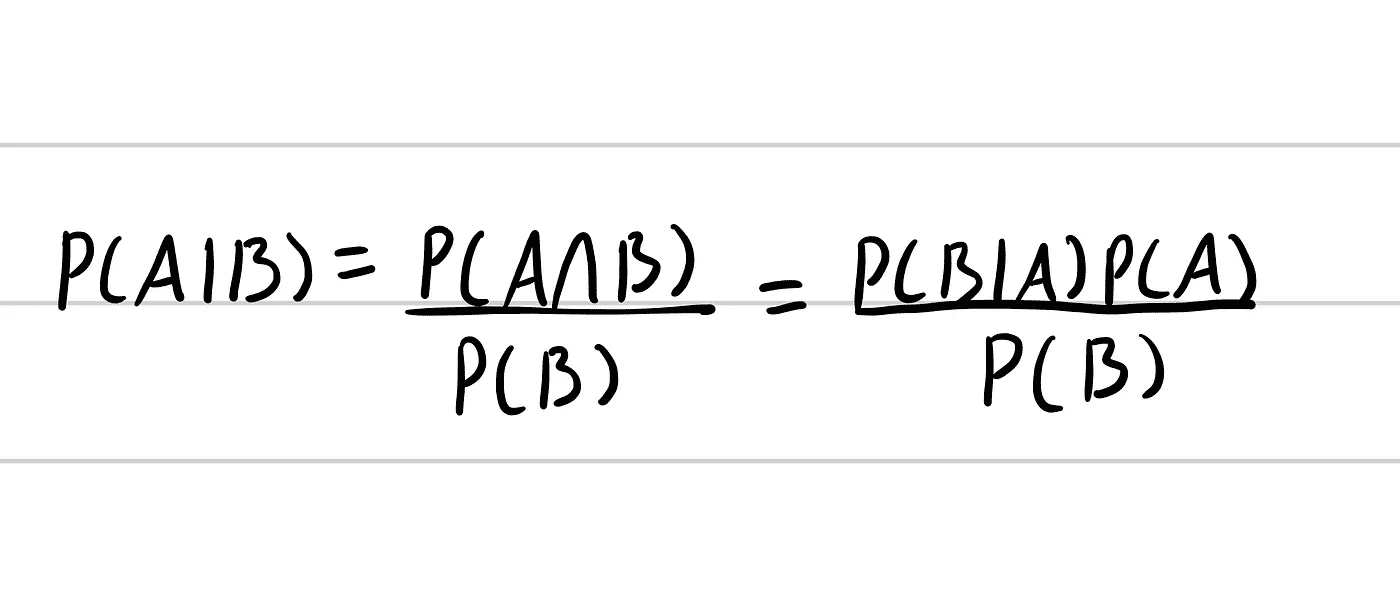 P(A|B) = P(A∩B) / P(B) = P(B|A)P(A) / P(B)